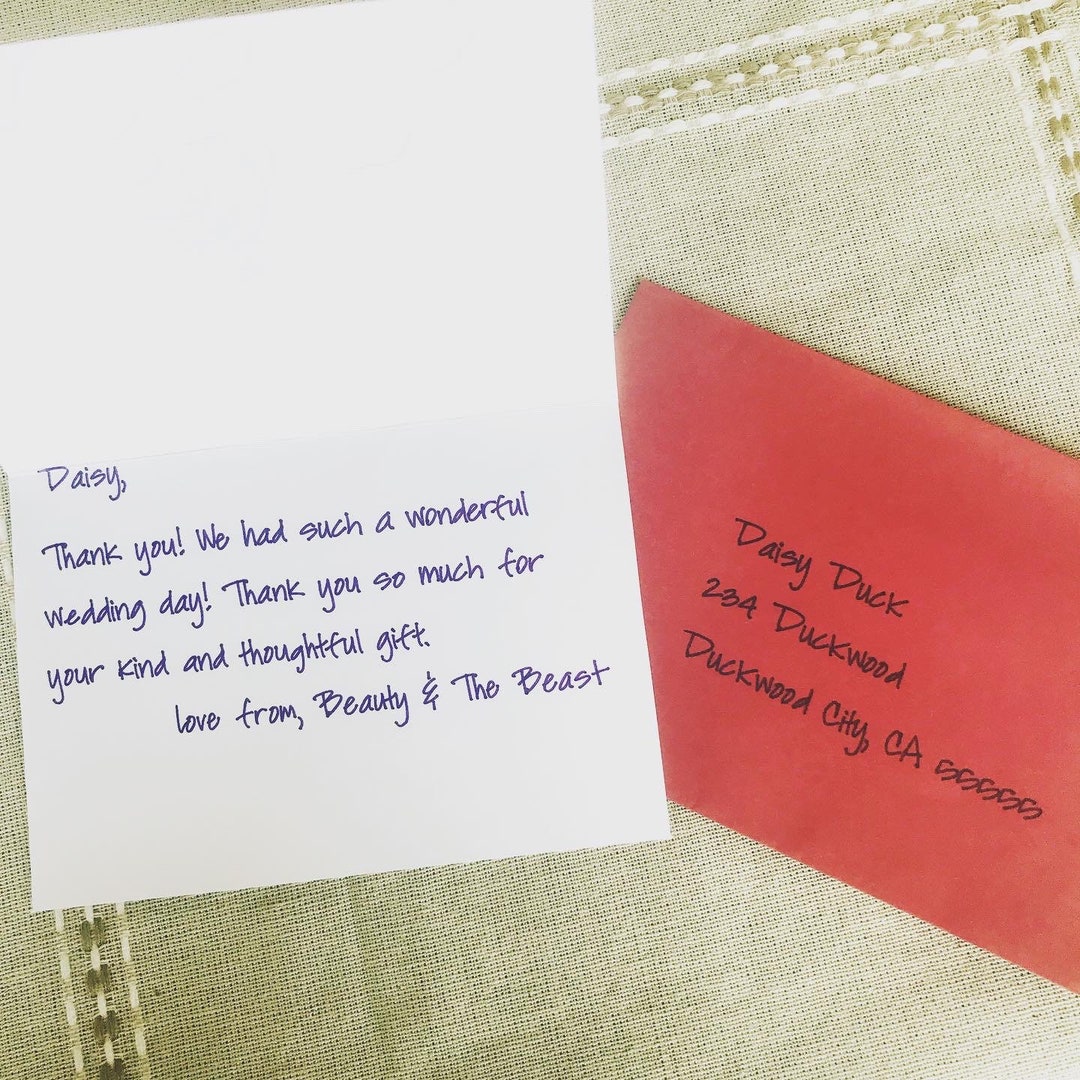 Daisy,
Thank you! We had such a wonderful
wedding day! Thank you so much for
your kind and thoughtful gift.
love from, Beauty & The Beast
Daisy Duck
234 Duckwood
Duckwood City, CA 555555